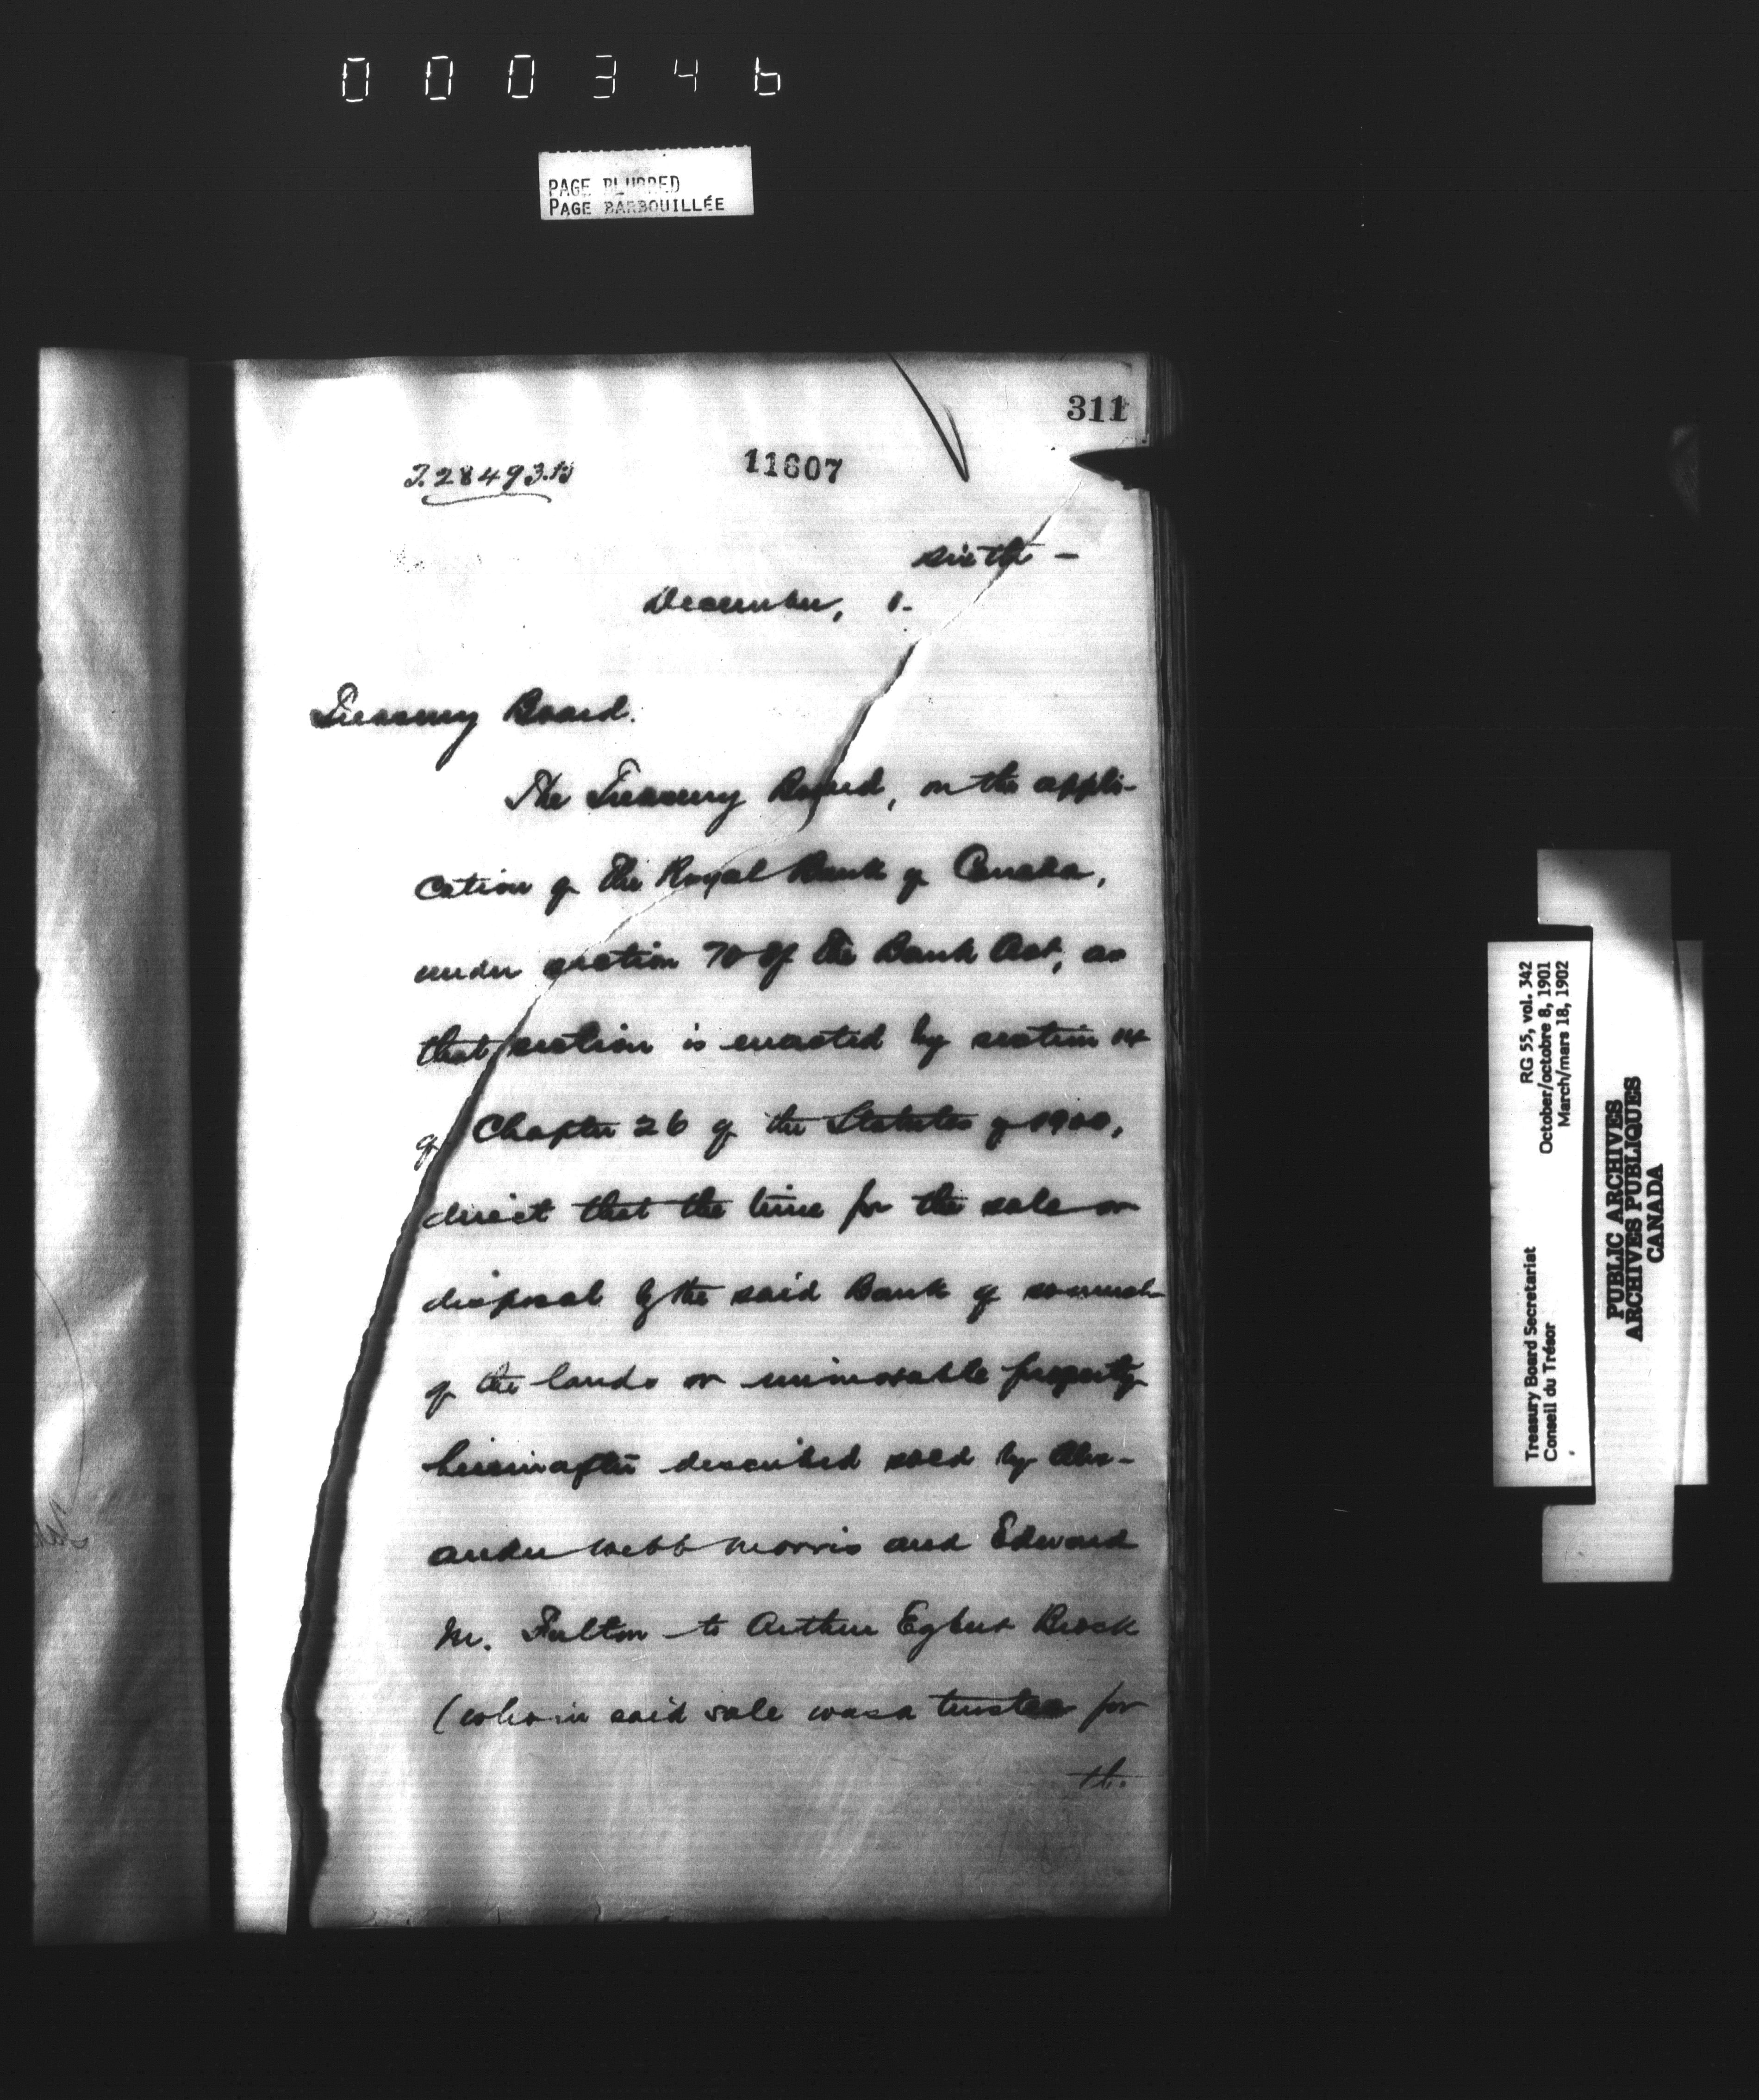 000346
PAGE BLURRED
PAGE BARBOUILLÉE
311
T.28493.B
11607
sixth -
December, 1.
Treasury Board.
The Treasury Board, on the appli-
cation of The Royal Bank of Canada,
under section 70 of the Bank Act, as
that section is enacted by section 14
of Chapter 26 of the Statutes of 1900,
direct that the time for the sale or
disposal by the said Bank of so much
of the lands or immovable property
hereinafter described sold by Alex-
ander Webb Morris and Edward
M. Fulton to Arthur Egbert Brock
(who in said sale was a trustee for
the
Treasury Board Secretariat
Conseil du Trésor
RG 55, vol. 342
October/octobre 8, 1901
March/mars 18, 1902
PUBLIC ARCHIVES
ARCHIVES PUBLIQUES
CANADA